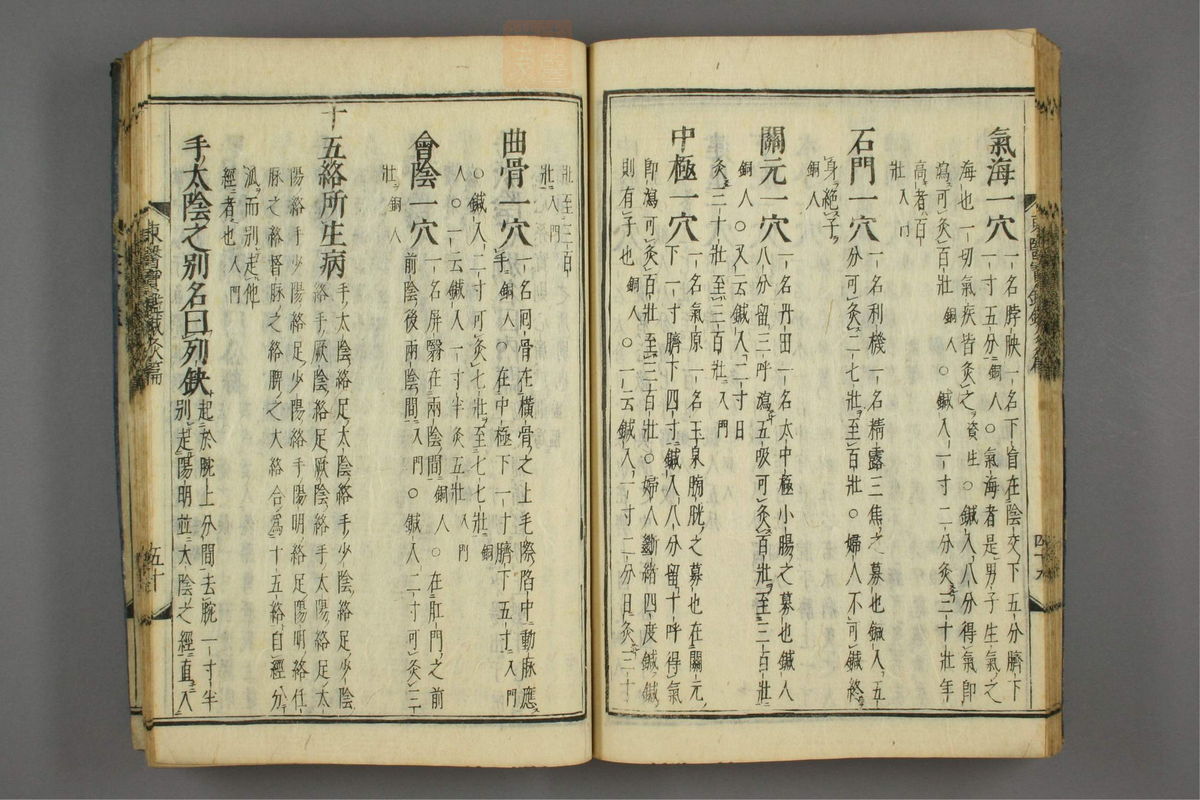 氣海一穴一名脖胦一名下肓在陰交下五分臍下
一寸五分銅人○氣海者是男子生氣之
海也一切氣疾皆灸之資生○鍼入八分得氣即
瀉可灸百壯銅人○鍼入一寸二分灸三十壯年
高者百
壯入門
石門一穴一名利機一名精露三焦之募也鍼入五
分可灸二七壯至百壯○婦人不可鍼終
身絶子
銅人
關元一穴一名丹田一名大中極小腸之募也鍼入
八分留三呼瀉五吸可灸百壯至三百壯
銅人○又云鍼入二寸日
灸三十壯至三百壯入門
中極一穴一名氣原一名玉泉膀胱之募也在關元
下一寸臍下四寸鍼入八分留十呼得氣
即瀉可灸百壯至三百壯○婦人斷緒四度鍼鍼
則有子也銅人○一云鍼入一寸二分日灸三十
東醫寶鑑鍼灸篇
四十九
壯至三百
壯入門
曲骨一穴一名囘骨在橫骨之上毛際陷中動脉應
手銅人○在中極下一寸臍下五寸入門
○鍼入二寸可灸七壯至七七壯銅
人○一云鍼入一寸半灸五壯入門
會陰一穴一名屏翳在兩陰間銅人○在肛門之前
前陰後兩陰間入門○鍼入二寸可灸三
壯銅人
十五絡所生病手太陰絡足太陰絡手少陰絡足少陰
絡手厥陰絡足厥陰絡手太陽絡足太
陽絡手少陽絡足少陽絡手陽明絡足陽明絡任
脉之絡督脉之絡脾之大絡合爲十五絡自經分
派而別起他
經者也入門
手太陰之別名曰列缺起於腕上分間去腕一寸半
別走陽明並太陰之經直入
東醫寶鑑鍼灸篇
五十